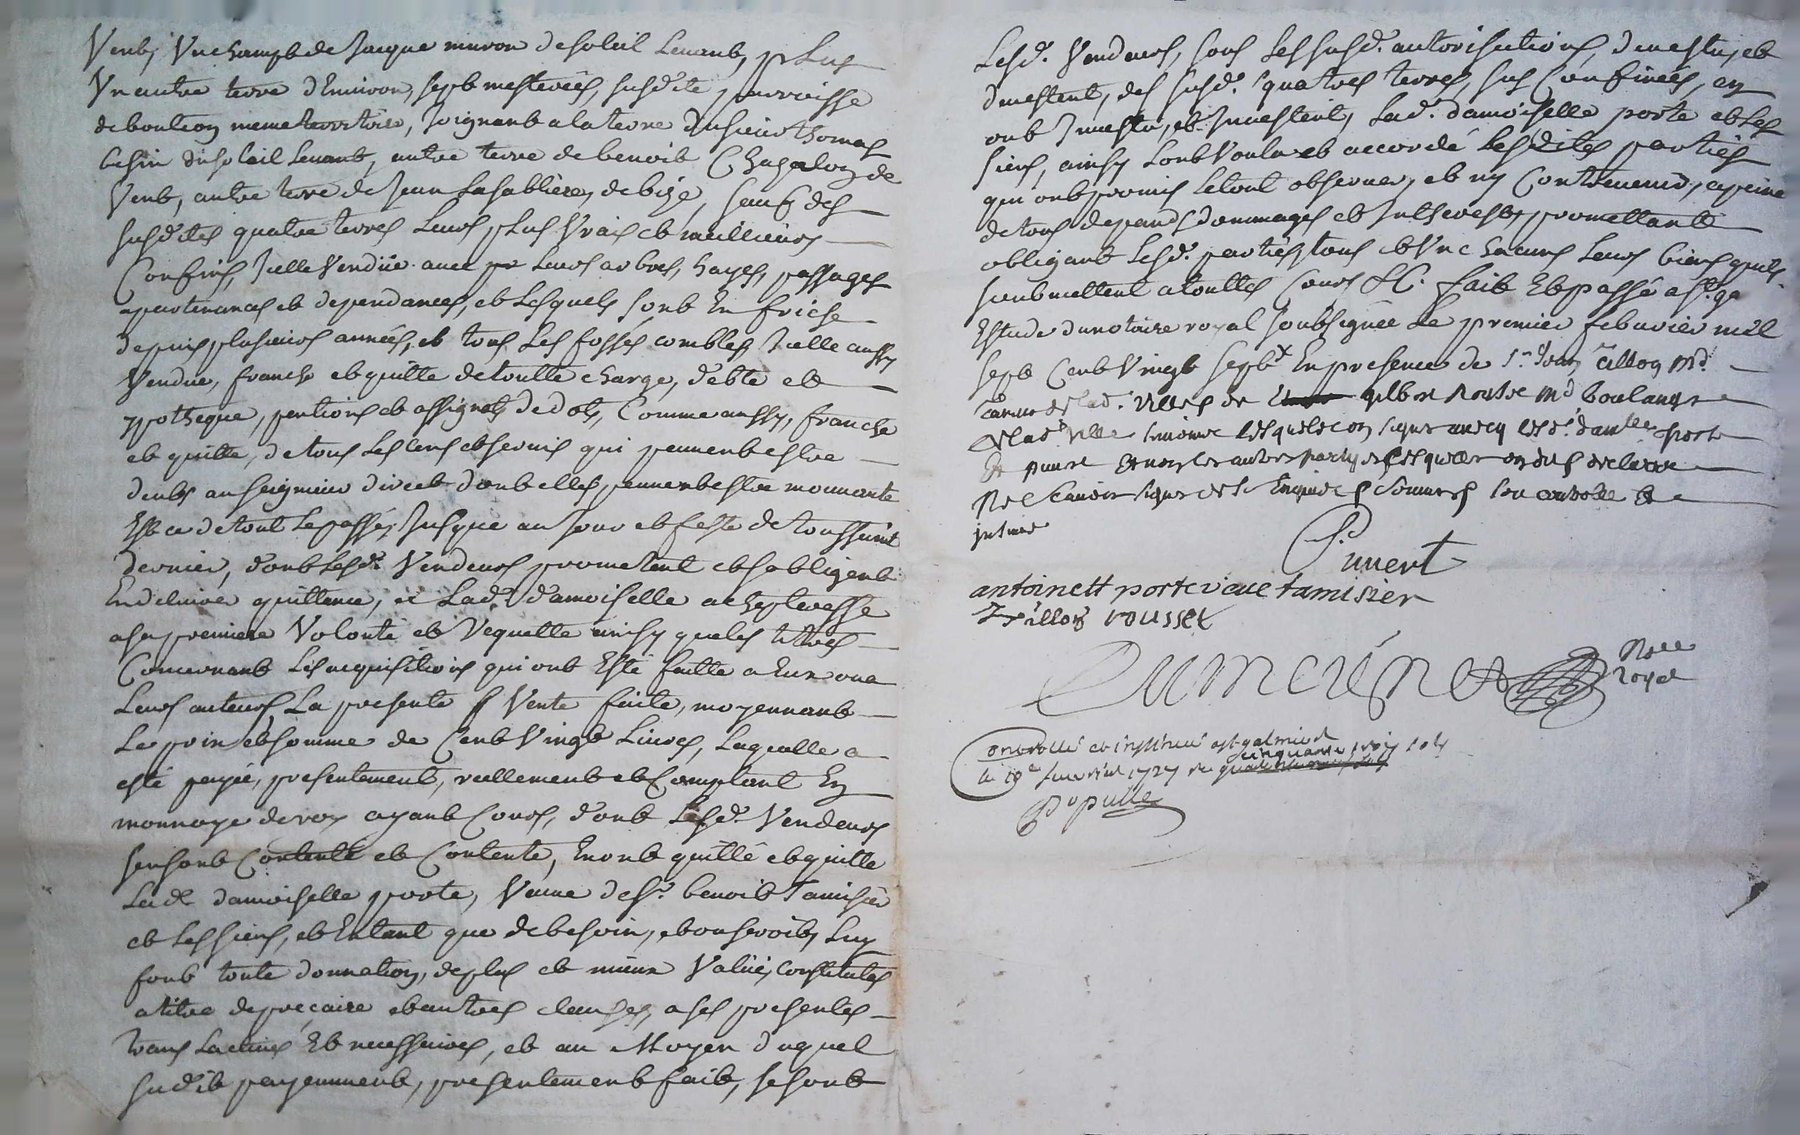 Vent, Vnchampt de Jacque muron de soleil Levant, plus
Vn autre terre d'Environ, sept mesterées, susdite parroisse
de bouteon meme territoire, Joignant a la terre du sieur thomas
du soleil Levant, autre terre de benoit Chazalon de
Vent, autre terre de Jean Lasablière, de bize, sauf des
susdites quatre terres Leurs plus Vrais et meilleurs
Confins, Jcelle Vendüe avec Leurs arbres, hayes, passages
apartenances et dependances, et Lesquels sont En friche
depuis plusieurs années, et tous Les fossés combles, Jcelle aussy
Vendue, franche et quitte de toutte charge, debte et
ypotheque, pentions et assignats de dots, Comme aussy, franche
et quitte, de tous Les Cens et servis qui peuvent estre
deubs au seigneur direct dont elles peuvent estre mouvante
Et ce de tout Lepassé, Jusque au Jour et feste de toussaint
dernier, dont Lesd. Vendeurs promettent et sobligent
En delivrer quittance, a Lad. damoiselle achepteresse
a sa premiere Volonté et Requette ainsy que les tittres
Concernant Les acquisitions qui ont Esté faitte a Eux ou a
Leurs auteurs, La presente Vente faite, moyennant
Le prix et somme de Cent Vingt Livres, Laquelle a
esté payée, presentement, reellement et Comptant En
monnoye de roy ayant Cours, dont Lesd. Vendeurs
se sont Contenté et Contente, En ont quitté et quitte
Lad. damoiselle porte, Veuve de Sr. benoit Tamisier
et Les siens, et Entant que de besoin, et on seroit, Luy
font toute donnation, de plus et mieux Value, constitutes
a titre de precaire et autres clauses, a ses presentes
translatives Et necessaires, et au Moyen duquel
sudit payemment, presentement fait, se sont
Lesd. Vendeurs, sous Les susd. autorisations, demestu, et
demestent, des susd. quatres terres, sus Confinées, en
ont Jnvestu, et Jnvestent, Lad. damoiselle porte et Les
siens, ainsy Lont Voulu et accordé Lesdites parties
qui ont promis Le tout observer, et ny Contrevenir, a peine
de tous depands dommages et Jntherests, promettant
obligeant Lesd. parties, tous et Vnchacuns Leurs biens quils
soubmettent a touttes Cours &c. fait Et passé a
Estude du notaire royal soubsignée Le premier febvrier mil
sept Cent Vingt sept En presence de Sr. Jean
de lad. Ville de gilbert Rousse md boulanger
de lad. Ville Lesquels ont signé avec lesd. damlle porte
Et puvert Et non les autres partyes
pour ne scavoir signer de ce Enquis et Sommés
Puvert
antoinett porte viave tamisier
Trillon rousset
Dumoriner
Nore
Royal
Controllé et insinué a st galmier
le 10e febvrier 1727 cinquante trois sols
Popuille